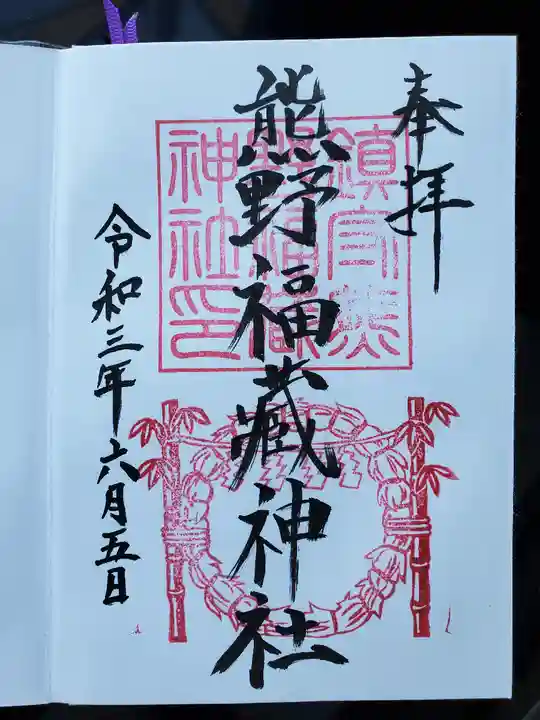 奉拝
熊野福藏神社
令和三年六月五日
神社印